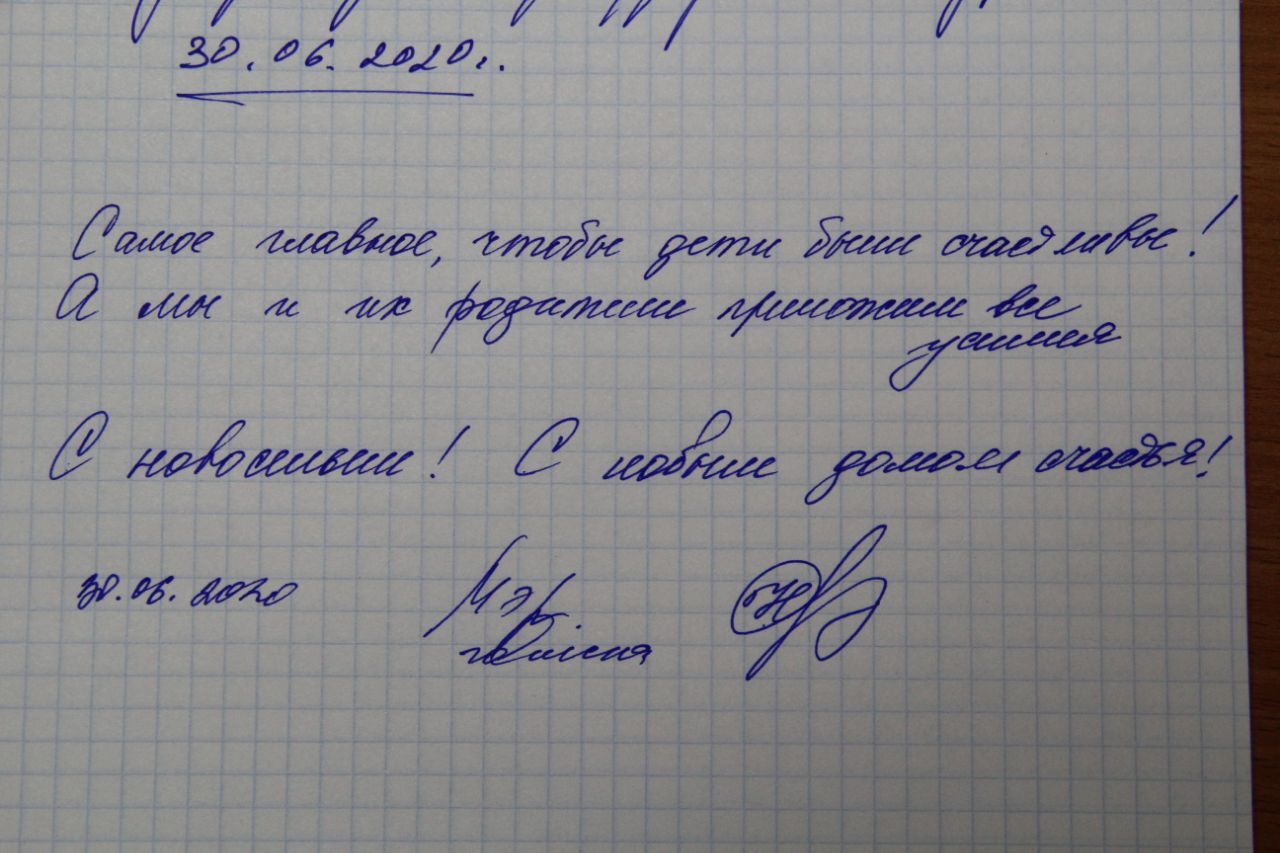 30.06.2020г.
Самое главное, чтобы дети были счастливы!
А мы и их родители приложим все
усилия
С новосельем! С новым домом счастья!
30.06.2020
Мэр